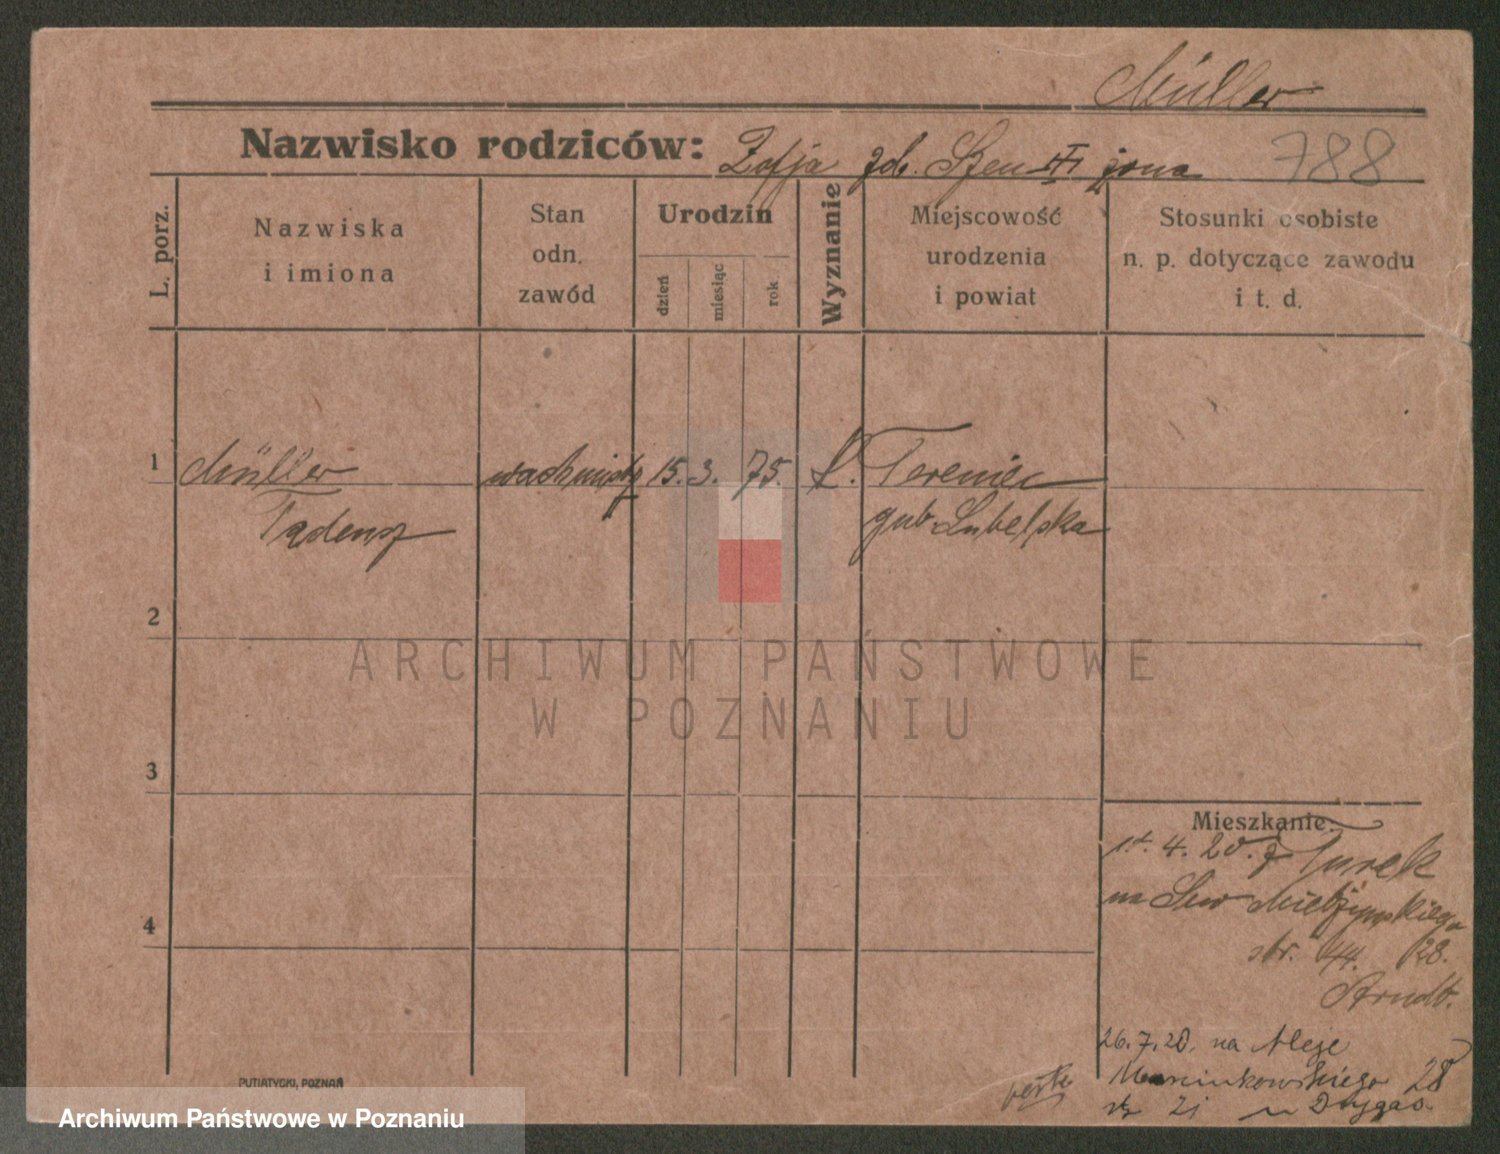 Müller
Nazwisko rodziców: Zofja żona
788
L. porz.
Nazwiska
i imiona
Stan
odn.
zawód
Urodzin
dzień
miesiąc
rok.
Wyznanie
Miejscowość
urodzenia
i powiat
Stosunki osobiste
n. p. dotyczące zawodu
i t. d.
1 Müller wachmistrz 15. 3. 75.
Tadeusz gub. Lubelska
2
3
4
Mieszkanie:
4. 20. z Turek
na
str. 44. 28.
Arndt.
26.7.20. na Aleje
Marcinkowskiego 28
21 u Drygas
PUTIATYCKI, POZNAŃ
ARCHIWUM PAŃSTWOWE
W POZNANIU
Archiwum Państwowe w Poznaniu